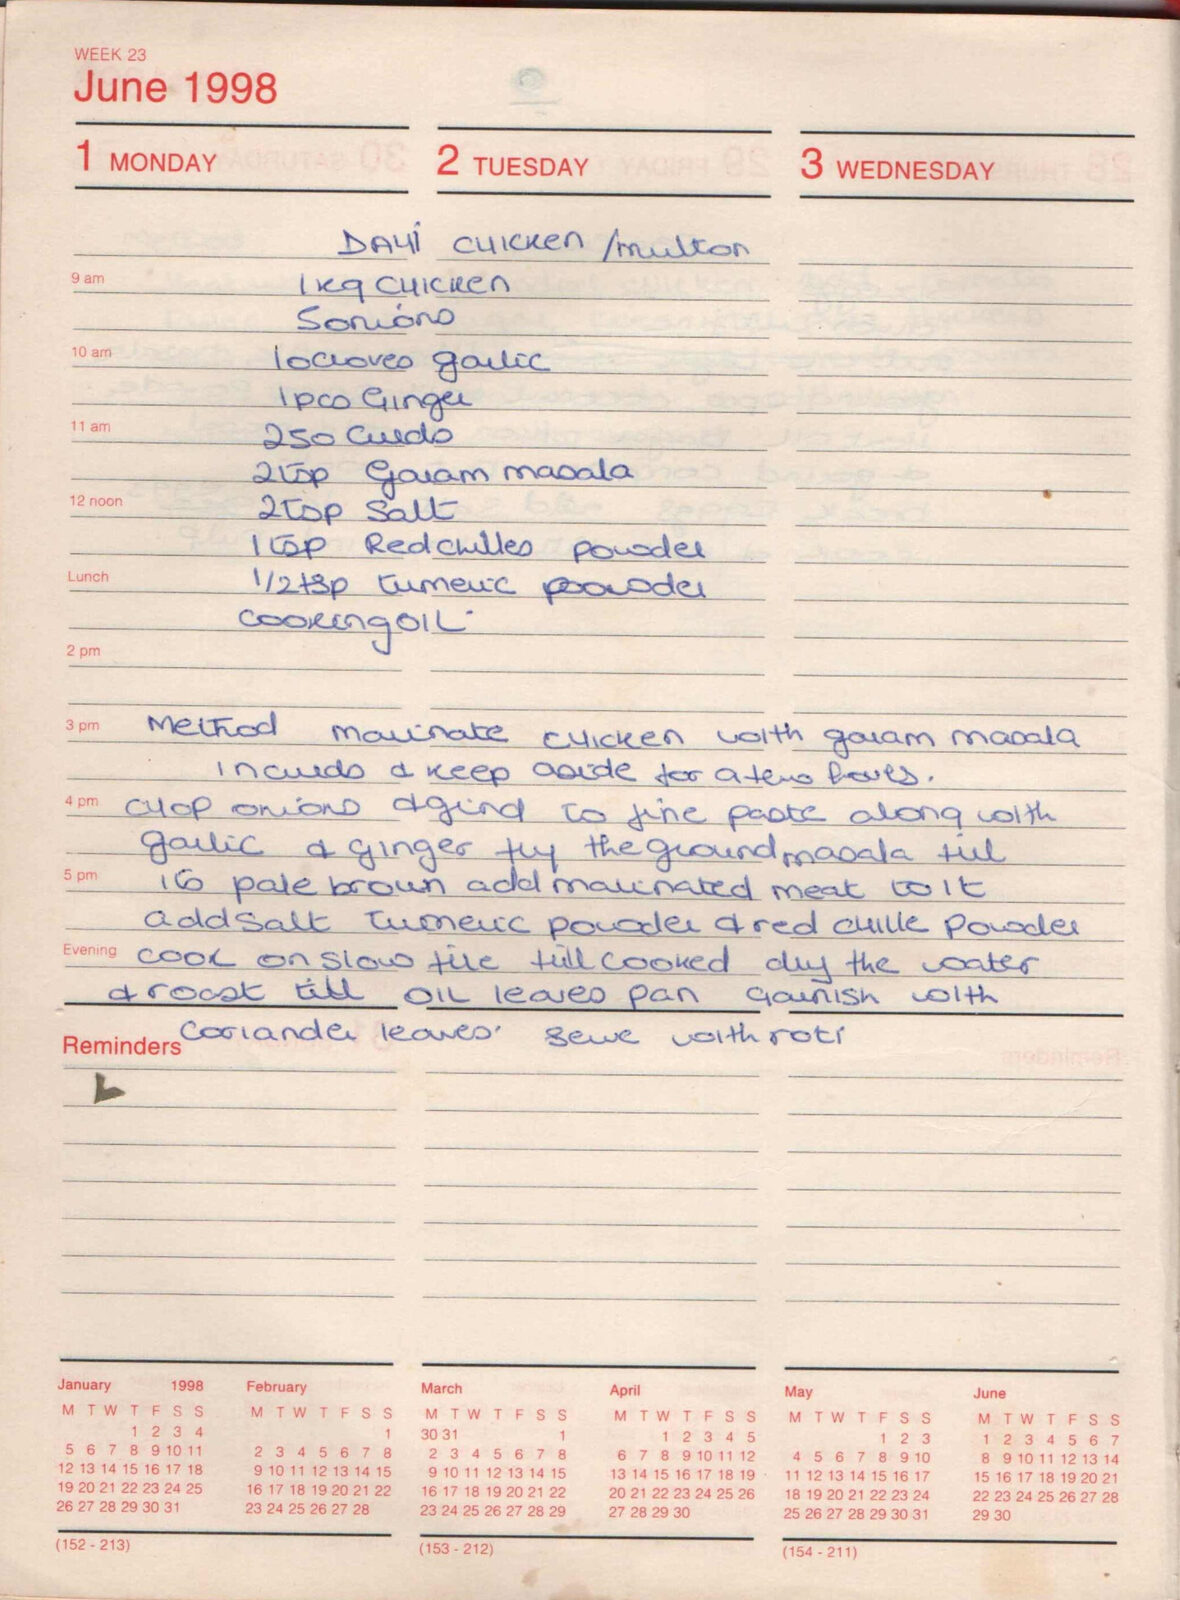 WEEK 23
June 1998
1 MONDAY 2 TUESDAY 3 WEDNESDAY
DAHI CHICKEN /mutton
9 am 1 kg CHICKEN
5 onions
10 am 10 cloves garlic
1 pco Ginger
11 am 250 Curds
2 tsp Garam masala
12 noon 2 tsp Salt
1 tsp Red chilles powder
Lunch 1/2 tsp tumeric poowder
cooking OIL
2 pm
3 pm Method marinate chicken with garam masala
in curds & keep aside for a few hours.
4 pm chop onions & grind to fine paste along with
garlic & ginger fry the ground masala till
5 pm its pale brown add marinated meat to it
add salt tumeric powder & red chille powder
Evening cook on slow fire till cooked dry the water
& roast till OIL leaves pan Garnish with
Reminders coriander leaves. serve with roti
January 1998 February March April May June
M T W T F S S M T W T F S S M T W T F S S M T W T F S S M T W T F S S M T W T F S S
1 2 3 4 1 30 31 1 1 2 3 4 5 1 2 3 1 2 3 4 5 6 7
5 6 7 8 9 10 11 2 3 4 5 6 7 8 2 3 4 5 6 7 8 6 7 8 9 10 11 12 4 5 6 7 8 9 10 8 9 10 11 12 13 14
12 13 14 15 16 17 18 9 10 11 12 13 14 15 9 10 11 12 13 14 15 13 14 15 16 17 18 19 11 12 13 14 15 16 17 15 16 17 18 19 20 21
19 20 21 22 23 24 25 16 17 18 19 20 21 22 16 17 18 19 20 21 22 20 21 22 23 24 25 26 18 19 20 21 22 23 24 22 23 24 25 26 27 28
26 27 28 29 30 31 23 24 25 26 27 28 23 24 25 26 27 28 29 27 28 29 30 25 26 27 28 29 30 31 29 30
(152 - 213) (153 - 212) (154 - 211)